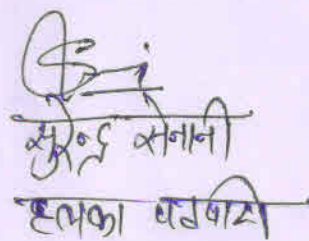 सुरेन्द्र सेनानी
हल्का पटवारी